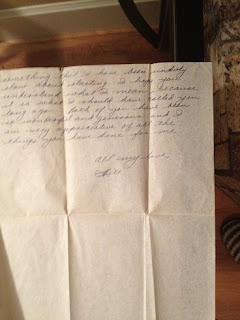 something that I have been unduly
slow about starting. I hope you
understand what I mean because
it is what I should have called you
long ago. Both of you have been
so wonderful and generous and I
am very appreciative of all the
things you have done for me.
All my love,